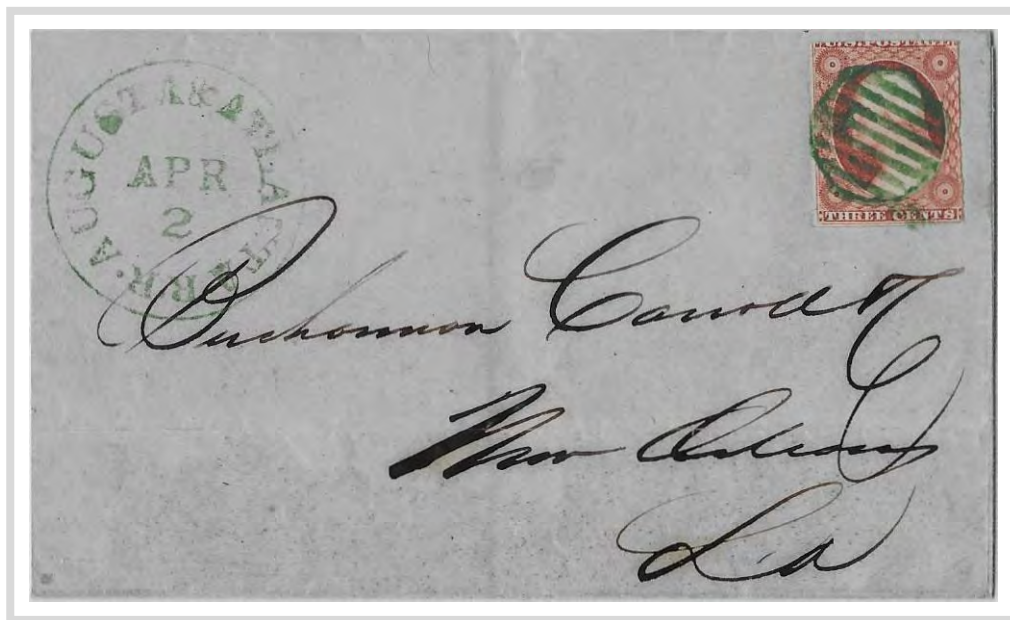 AUGUSTA & ATLANTA R.R.
APR
2
U.S. POSTAGE
THREE CENTS
Buchannon Carroll & Co
New Orleans
La